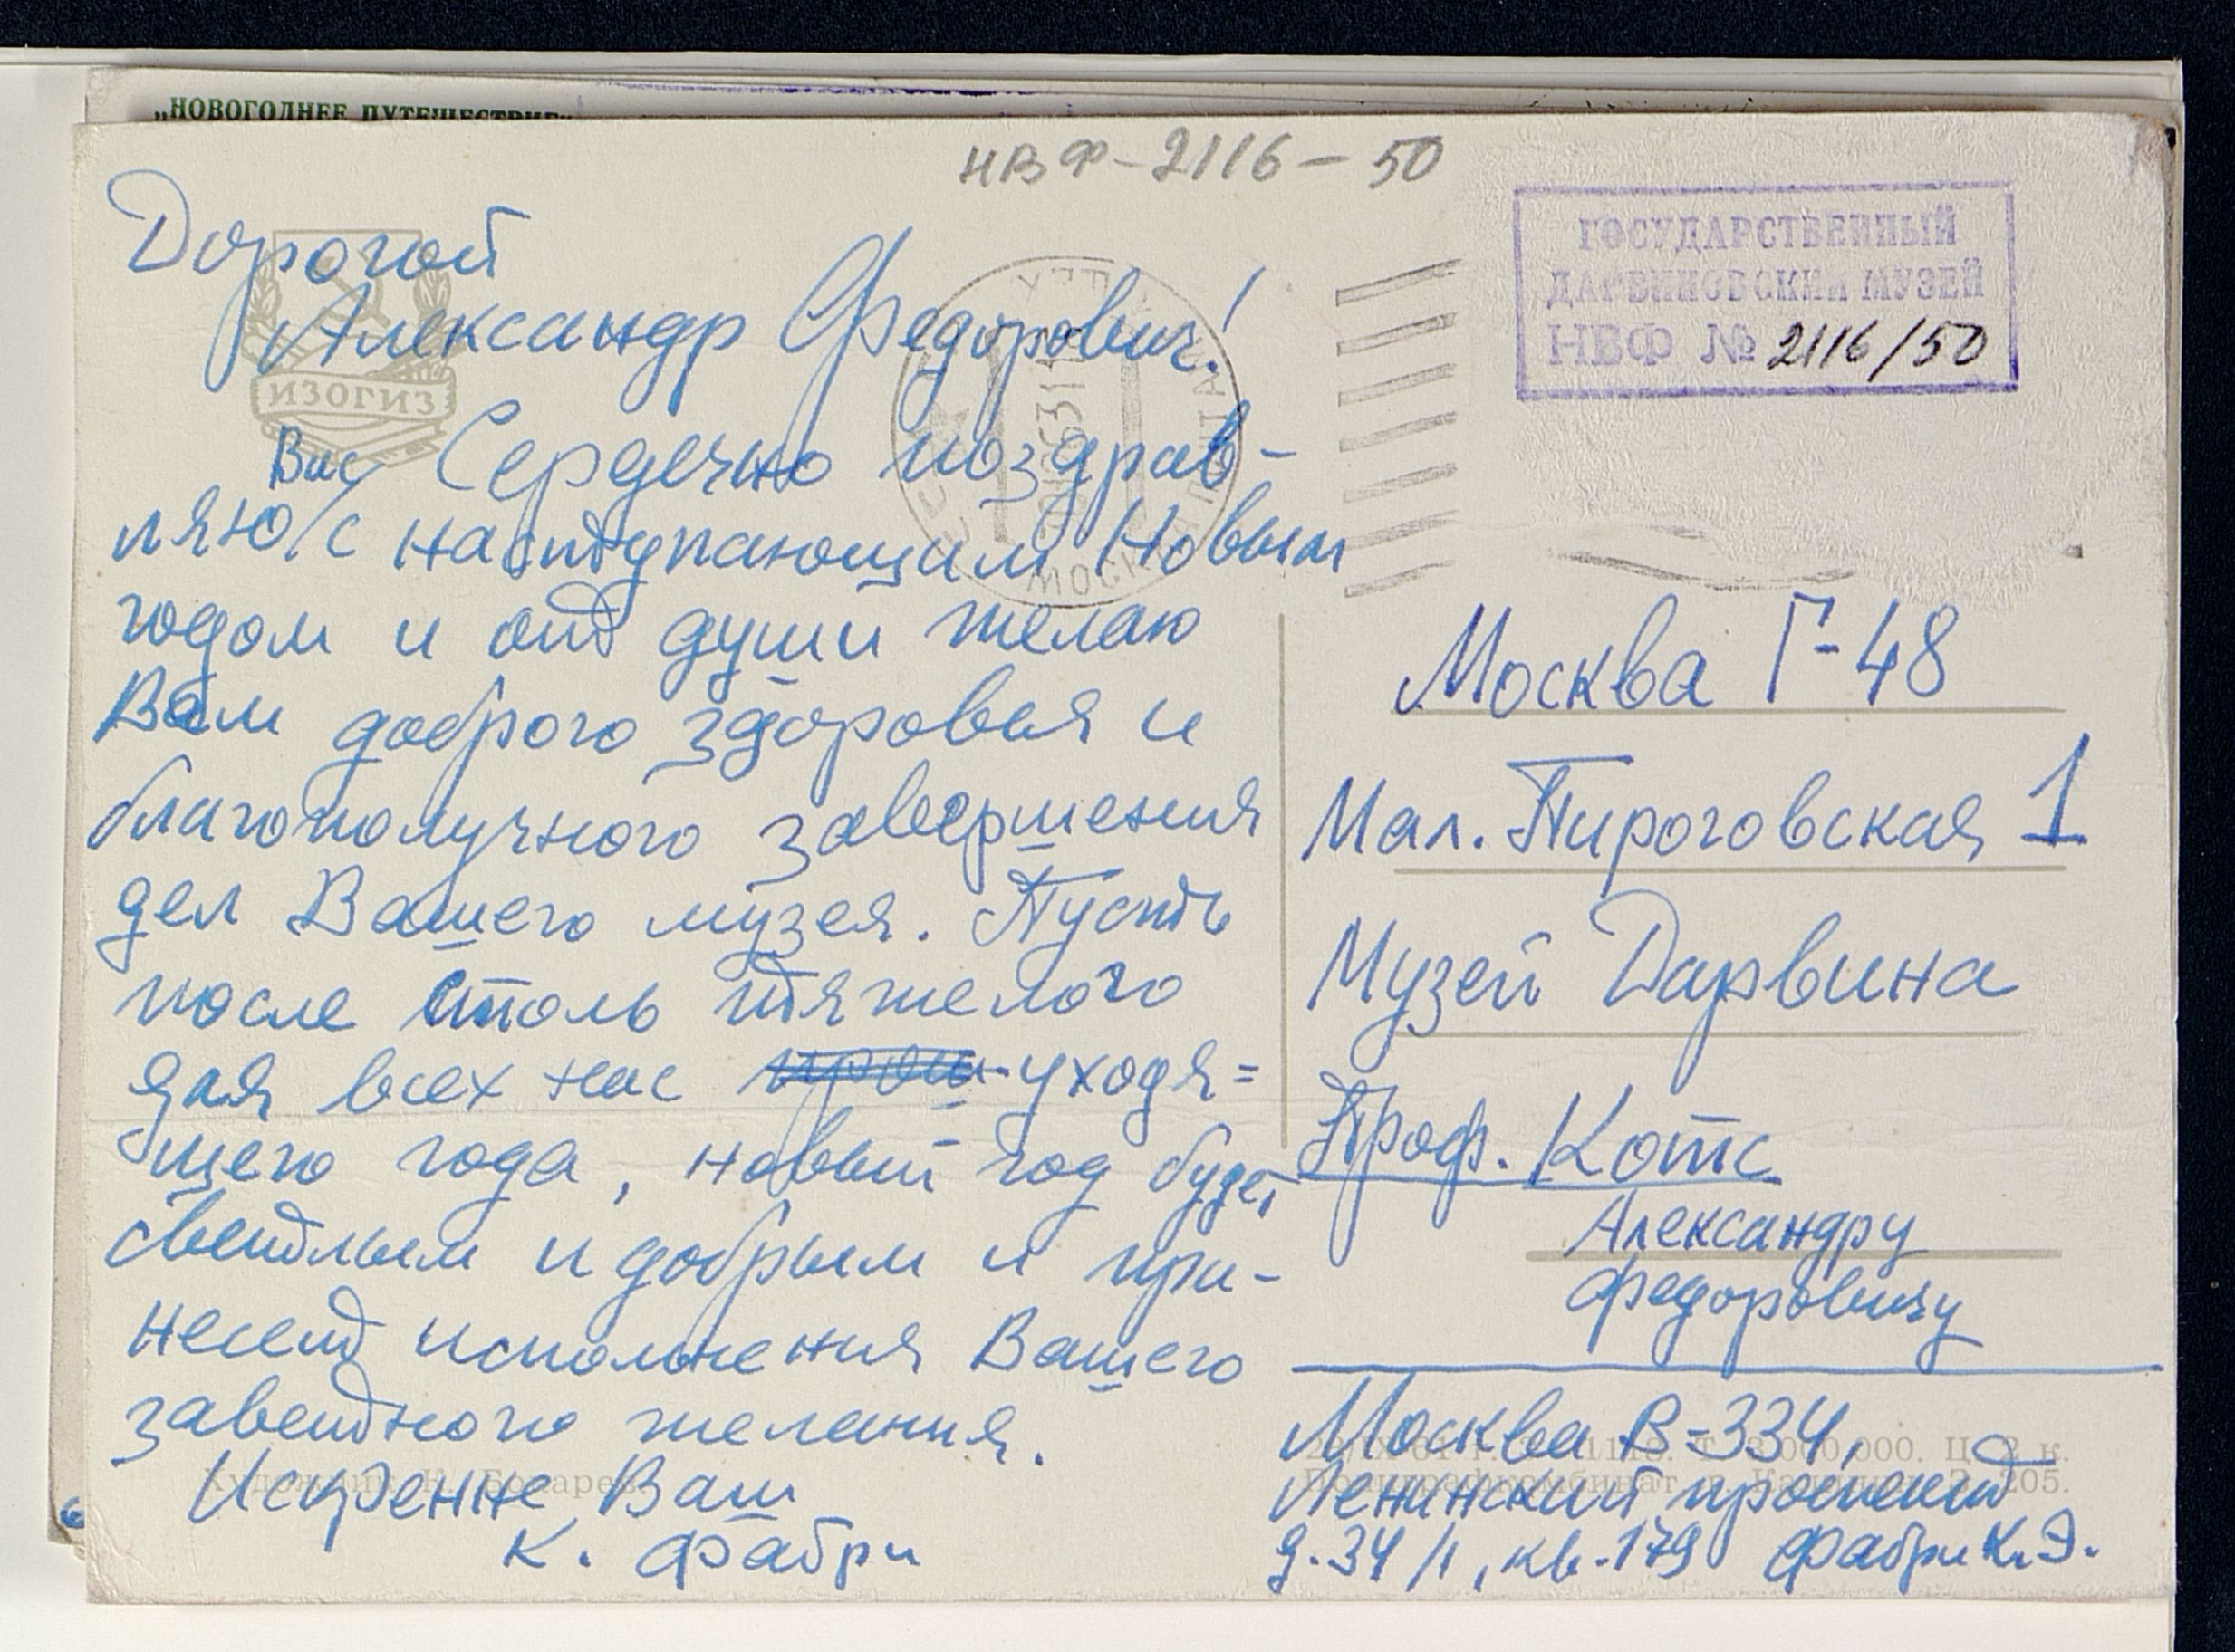 „НОВОГОДНЕЕ ПУТЕШЕСТВИЕ“
НВФ-2116-50
ГОСУДАРСТВЕННЫЙ
ДАРВИНОВСКИЙ МУЗЕЙ
НВФ № 2116/50
ИЗОГИЗ
МОСКВА
Дорогой
Александр Федорович!
Вас Сердечно поздрав-
ляю с наступающим Новым
годом и от души желаю
Вам доброго здоровья и
благополучного завершения
дел Вашего музея. Пусть
после столь тяжелого
для всех нас прош- уходя=
щего года, новый год будет
светлым и добрым и при-
несет исполнения Вашего
заветного желания.
Искренне Ваш
К. Фабри
Художник Н. Бочарев
Москва Г-48
Мал. Пироговская 1
Музей Дарвина
Проф. Котс
Александру
Федоровичу
Москва В-334,
Ленинский проспект
д. 34/1, кв. 179 Фабри К.Э.
000.000. Ц. 2 к.
205.